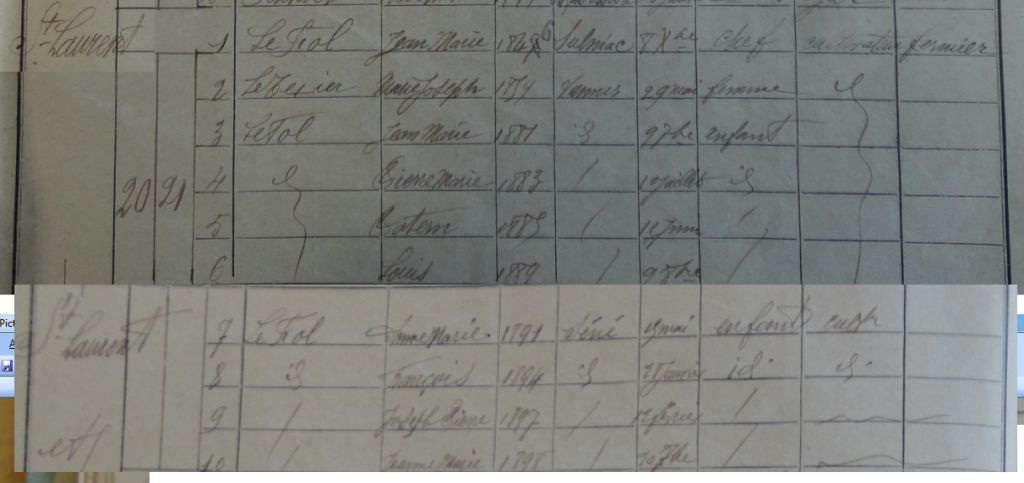 St Laurent 1 Le Fol Jean Marie 1846 Sulniac 8 Xbre chef cultivateur fermier
2 Le Texier Marie Joseph 1859 Vannes 29 mai femme id
3 Le Fol Jean Marie 1881 id 9 7bre enfant
20 21 4 id Pierre Marie 1883 / 1 juillet id
5 1885 / /
6 Louis 1889 / /
St Laurent 7 Le Fol Anne Marie 1891 Séné mai enfant cultr
8 id François 1894 id janvier id id
9 / Joseph Pierre 1897 / /
10 / Jeanne Marie 1898 / 7bre /